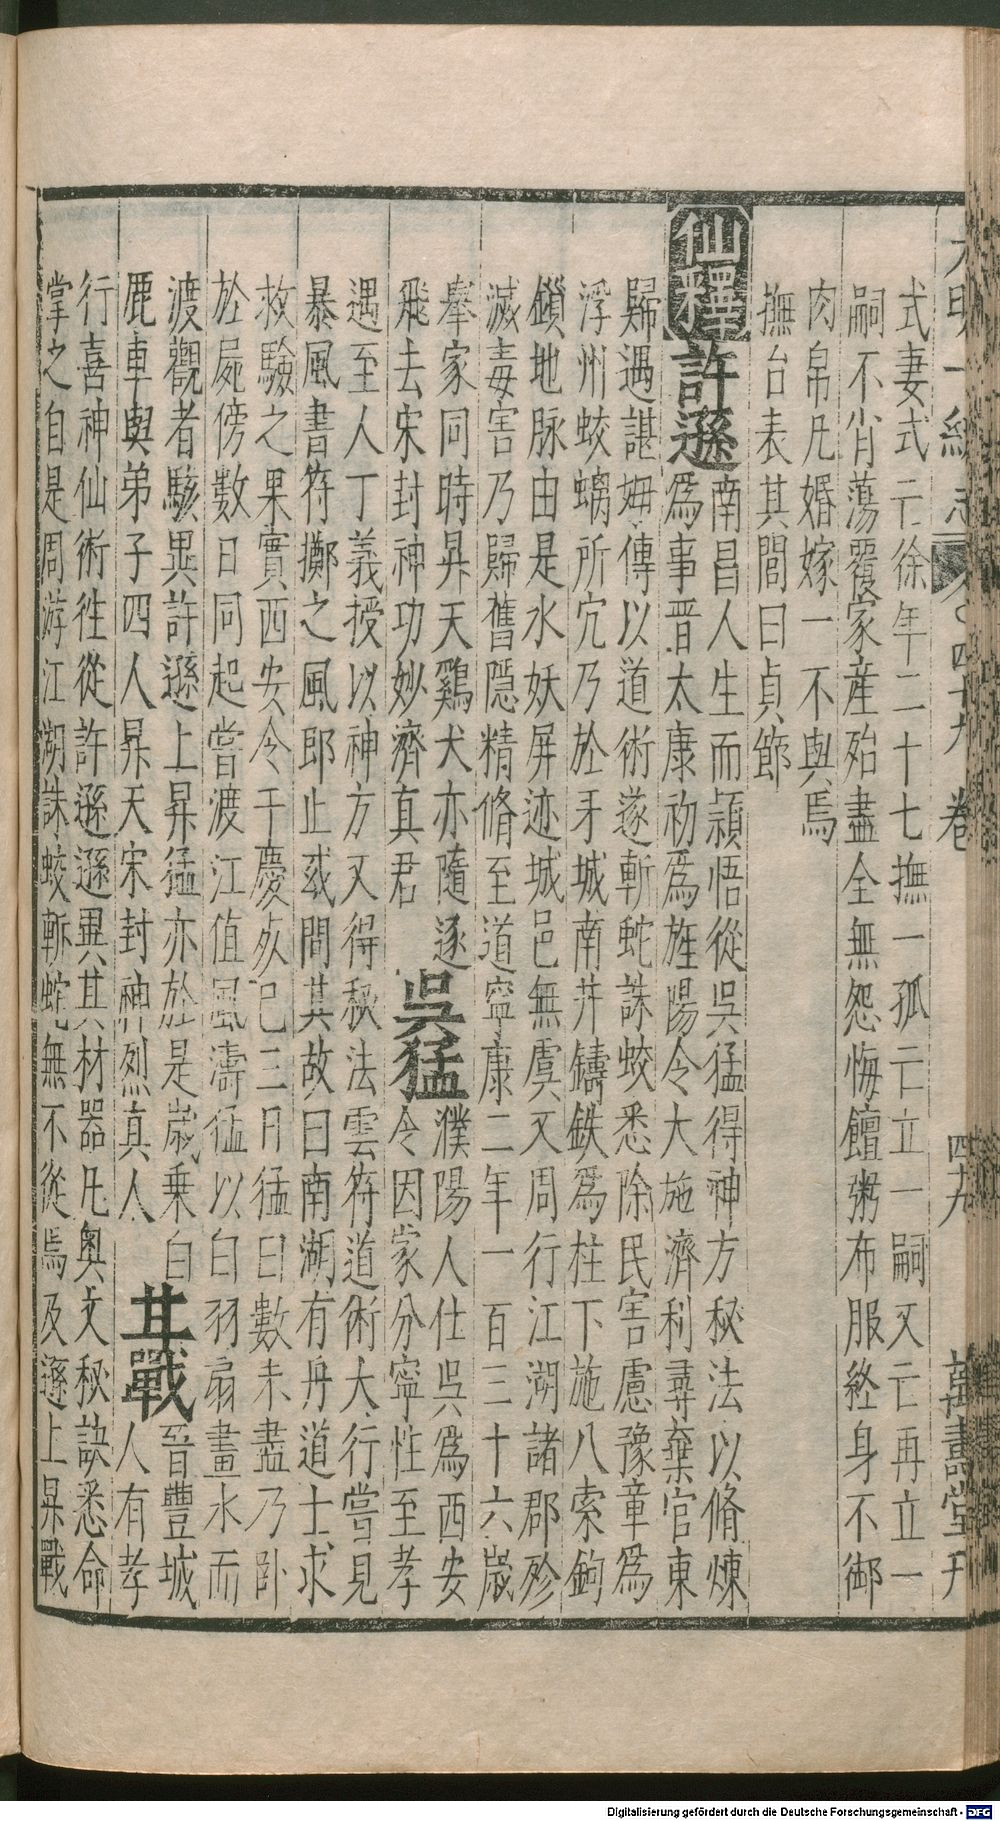 大明一統志 卷之四十九 卷 四十九 萬壽堂刊
式妻式亡徐年二十七撫一孤亡立一嗣又亡再立一
嗣不肖蕩覆家産殆盡全無怨悔饘粥布服終身不御
肉帛凡婚嫁一不與焉
撫台表其閭曰貞節
仙釋 許遜 南昌人生而頴悟從吳猛得神方秘法以脩煉
爲事晋太康初爲旌陽令大施濟利尋棄官東
歸遇諶姆傳以道術遂斬蛇誅蛟悉除民害慮豫章爲
浮州蛟螭所穴乃於牙城南井鑄鉄爲柱下施八索鉤
鎖地脉由是水妖屏迹城邑無虞又周行江湖諸郡殄
滅毒害乃歸舊隱精脩至道寧康二年一百三十六歲
舉家同時昇天鷄犬亦隨逐
飛去宋封神功妙濟真君 吳猛 濮陽人仕吳爲西安
令因家分寧性至孝
遇至人丁義授以神方又得秘法雲符道術大行嘗見
暴風書符擲之風郎止或問其故曰南湖有舟道士求
救驗之果實西安令干慶死已三日猛曰數未盡乃卧
於屍傍數日同起嘗渡江值風濤猛以白羽扇畫水而
渡觀者駭異許遜上昇猛亦於是歲乗白
鹿車與弟子四人昇天宋封神烈真人 甘戰 晉豐城
人有孝
行喜神仙術徃從許遜遜異其材器凡奥文秘訣悉命
掌之自是周游江湖誅蛟斬蛇無不從焉及遜上昇戰
Digitalisierung gefördert durch die Deutsche Forschungsgemeinschaft - DFG